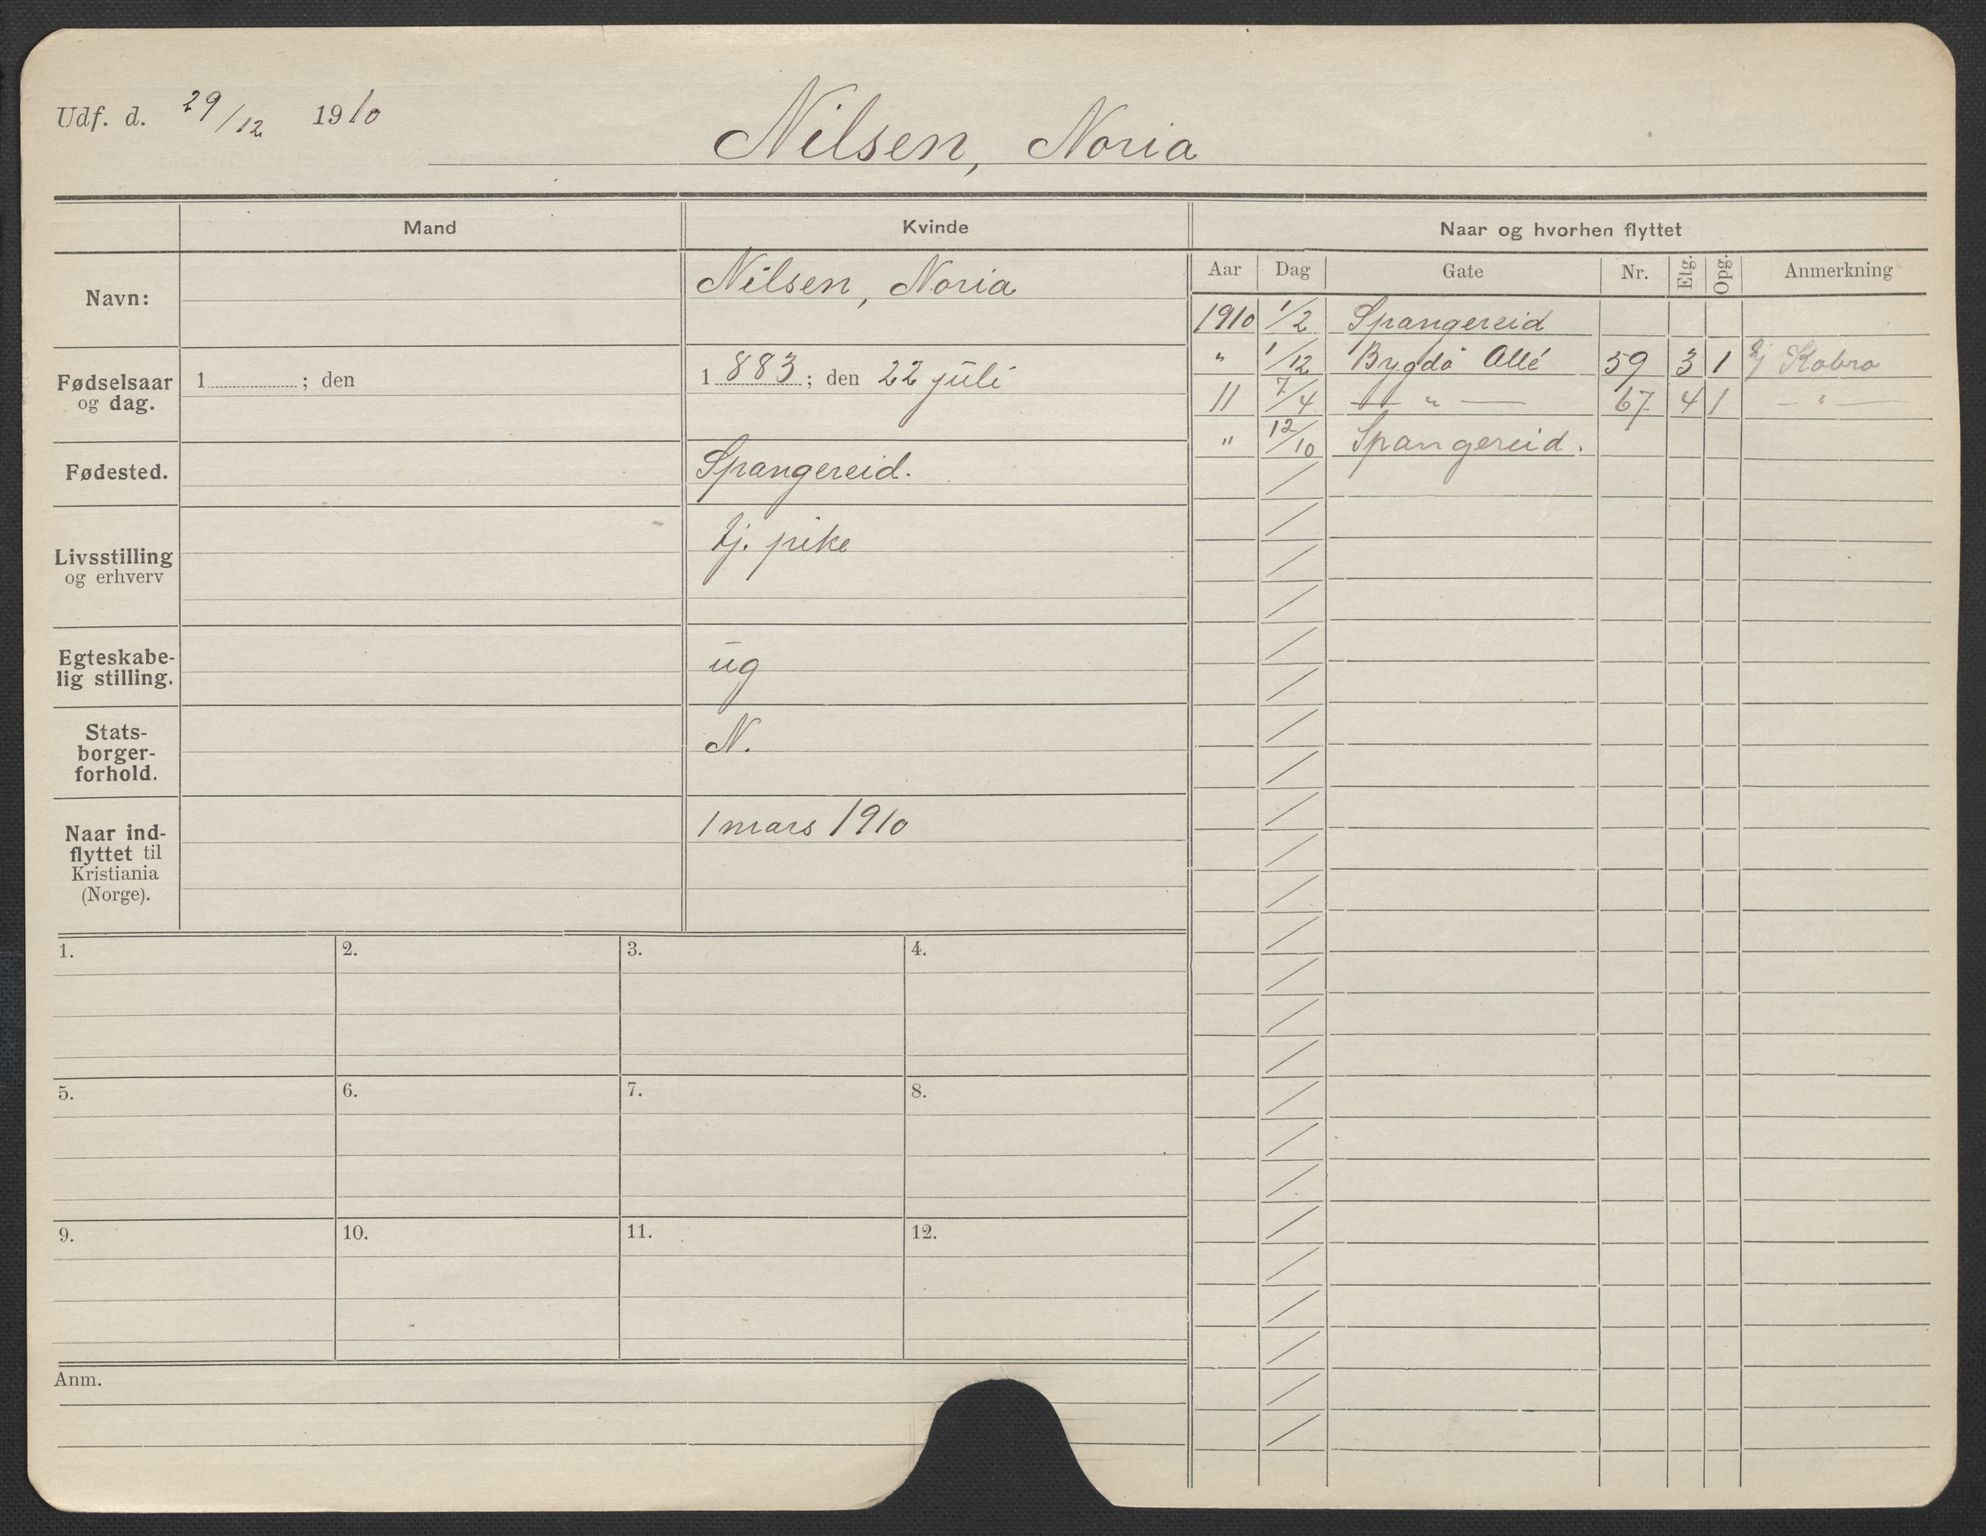 Udf. d. 29/12 1910
Nilsen, Noria
Mand
Kvinde
Naar og hvorhen flyttet
Aar Dag Gate Nr. Etg. Opg. Anmerkning
Navn:
Nilsen, Noria
1910 1/2 Spangereid
" 1/12 Bygdö Allé 59 3 1 tj Kobro
11 7/4 — " — 67 4 1 — " —
" 12/10 Spangereid.
Fødselsaar
og dag.
1 ; den
1883 ; den 22 juli
Fødested.
Spangereid.
Livsstilling
og erhverv
tj. pike
Egteskabe-
lig stilling.
ug
Stats-
borger-
forhold.
N.
Naar ind-
flyttet til
Kristiania
(Norge).
1 mars 1910
1. 2. 3. 4.
5. 6. 7. 8.
9. 10. 11. 12.
Anm.